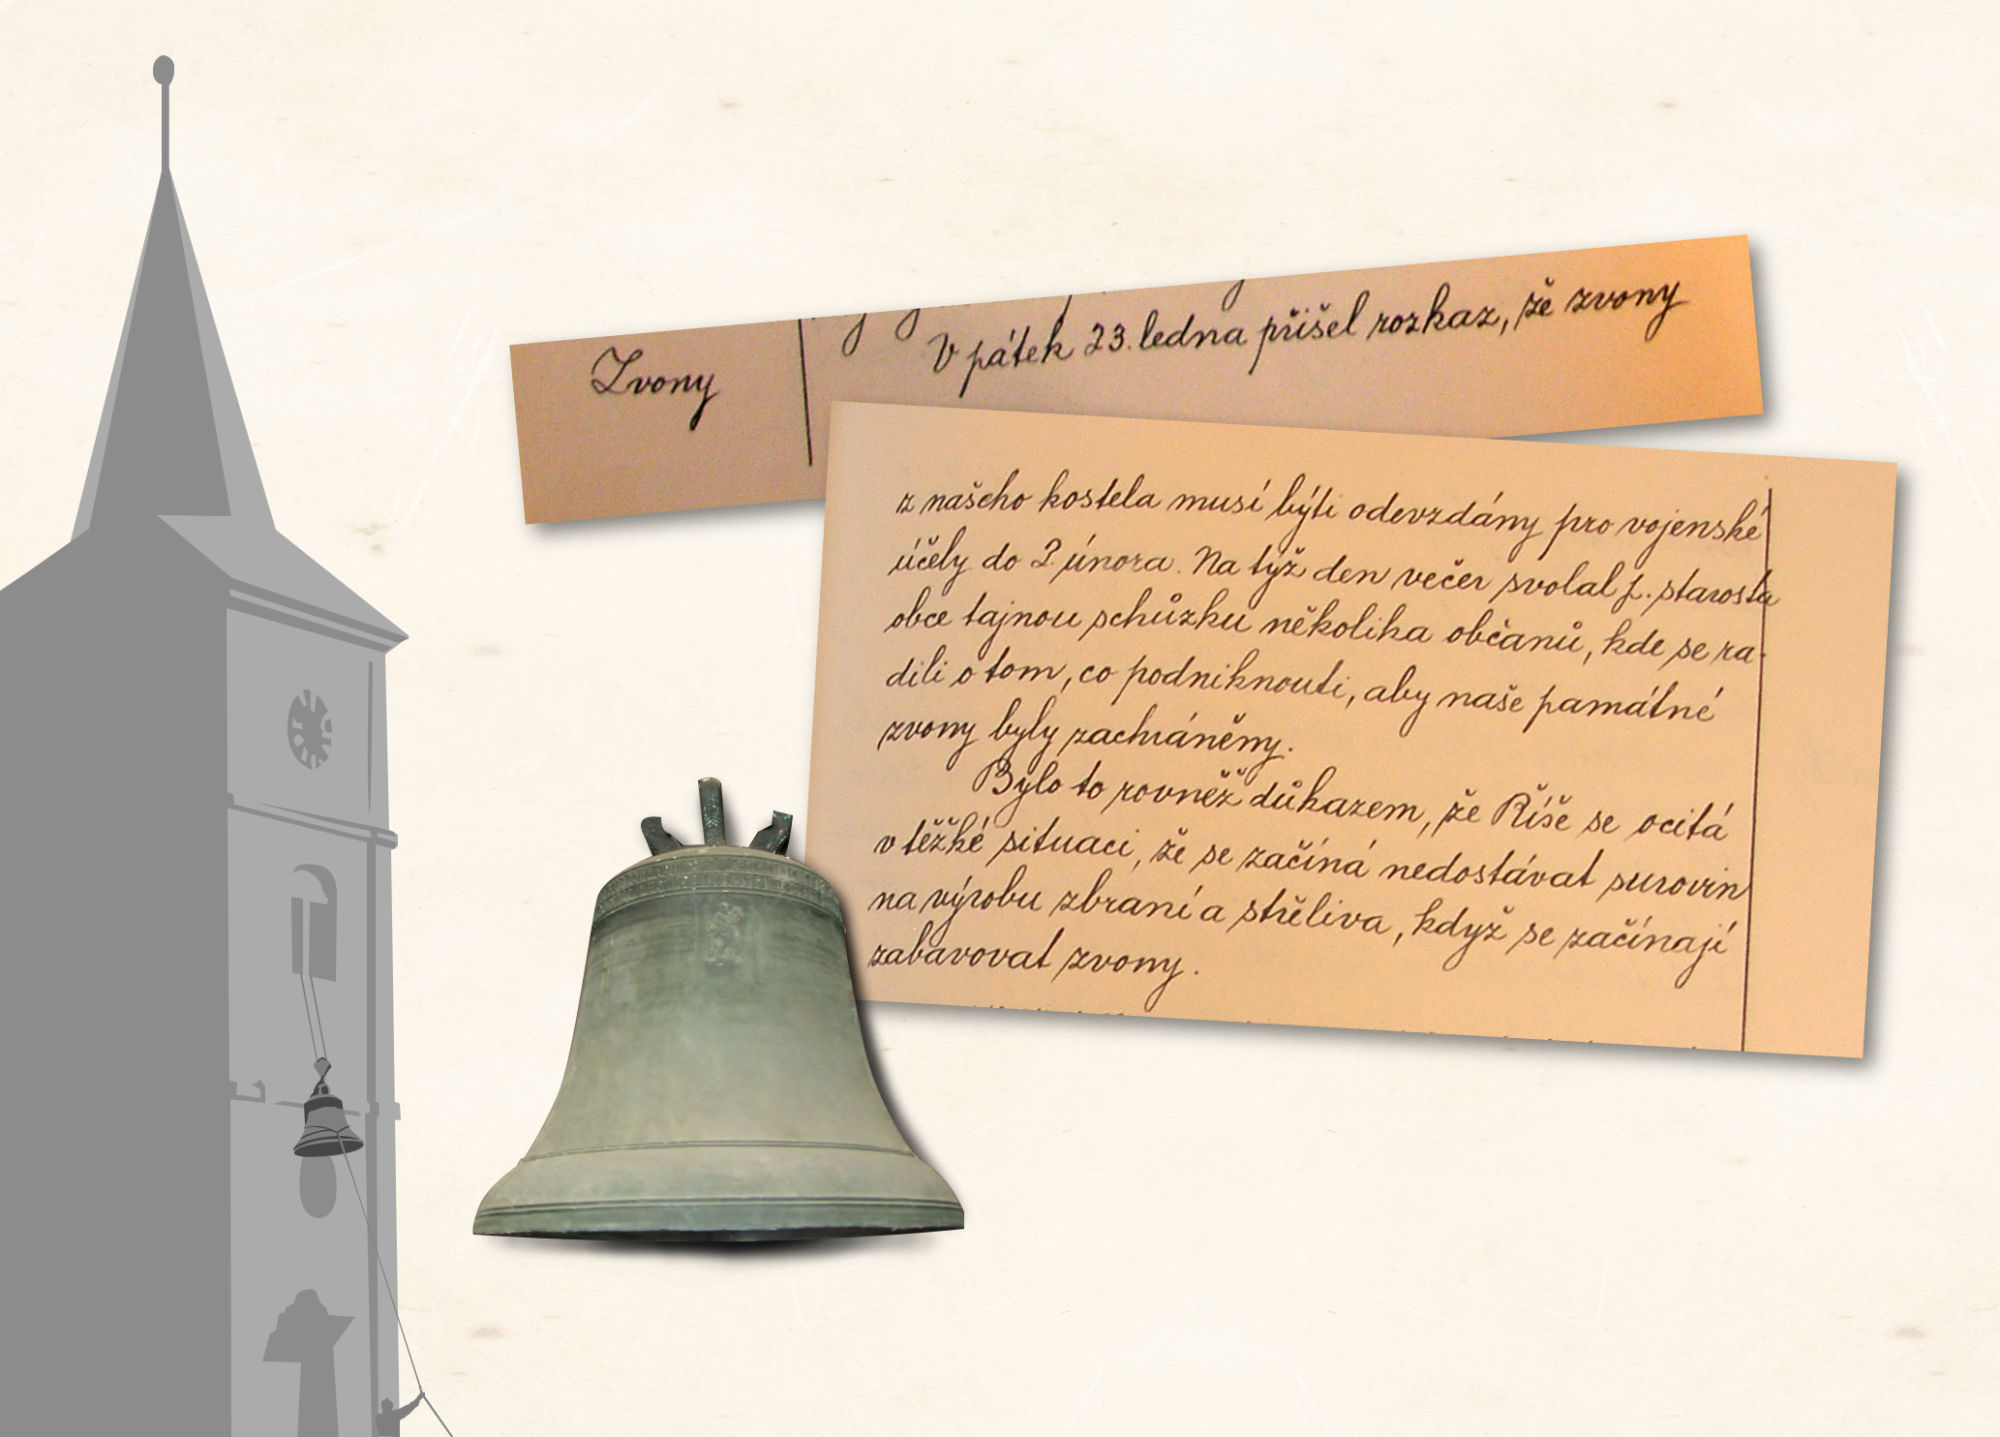 Zvony
V pátek 23. ledna přišel rozkaz, že zvony
z našeho kostela musí býti odevzdány pro vojenské
účely do 2 února. Na týž den večer svolal p. starosta
obce tajnou schůzku několika občanů, kde se ra-
dili o tom, co podniknouti, aby naše památné
zvony byly zachráněny.
Bylo to rovněž důkazem, že Říše se ocitá
v těžké situaci, že se začíná nedostávat surovin
na výrobu zbraní a střeliva, když se začínají
zabavovat zvony.